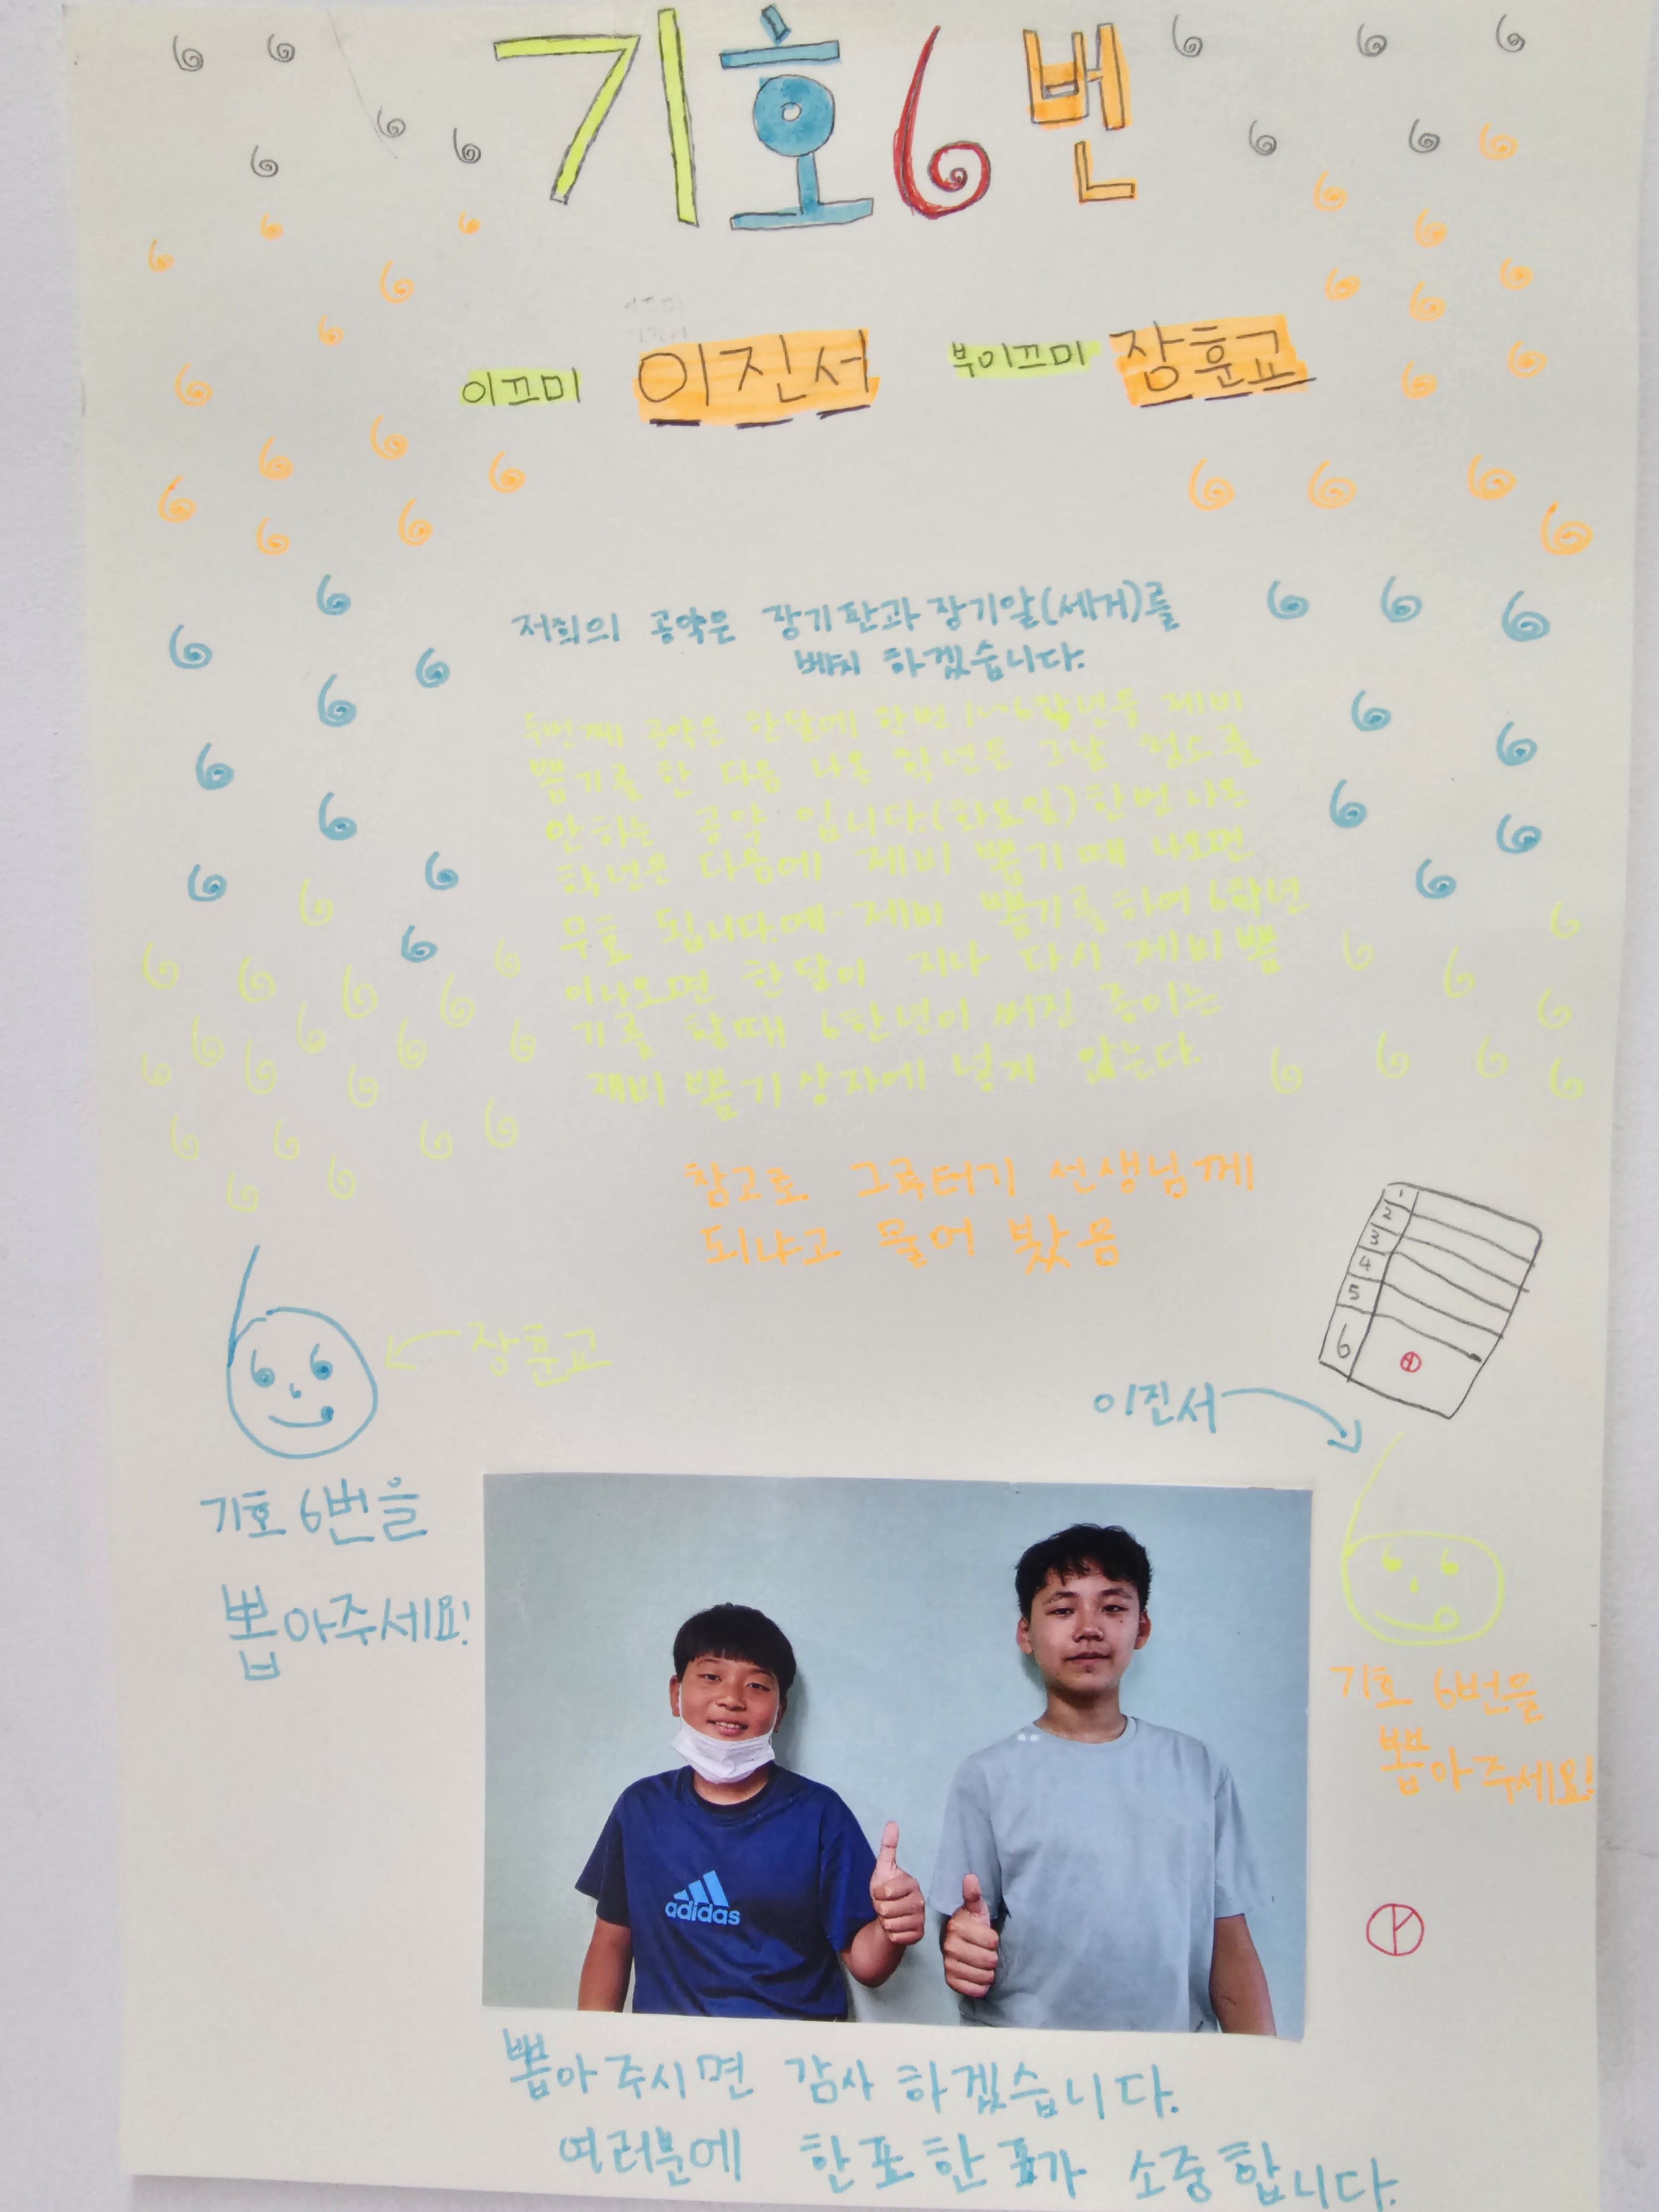 기호6번
이끄미 이진서 부이끄미 장훈교
저희의 공약은 장기판과 장기알(세거)를
배치 하겠습니다.
두번째 공약은 한달에 한번 1~6학년중 제비
뽑기를 한 다음 나온 학년은 그날 청소를
안하는 공약 입니다.(화요일) 한번 나온
학년은 다음에 제비 뽑기 때 나오면
무효 됩니다.예-제비 뽑기를하여 6학년
이나오면 한달이 지나 다시 제비뽑
기를 할때 6학년이 써진 종이는
제비 뽑기상자에 넣지 않는다.
참고로 그루터기 선생님께
되냐고 물어 봤음
1
2
3
4
5
6
장훈교
이진서
기호 6번을
뽑아주세요!
기호 6번을
뽑아주세요!
adidas
뽑아 주시면 감사 하겠습니다.
여러분에 한표한표가 소중합니다.